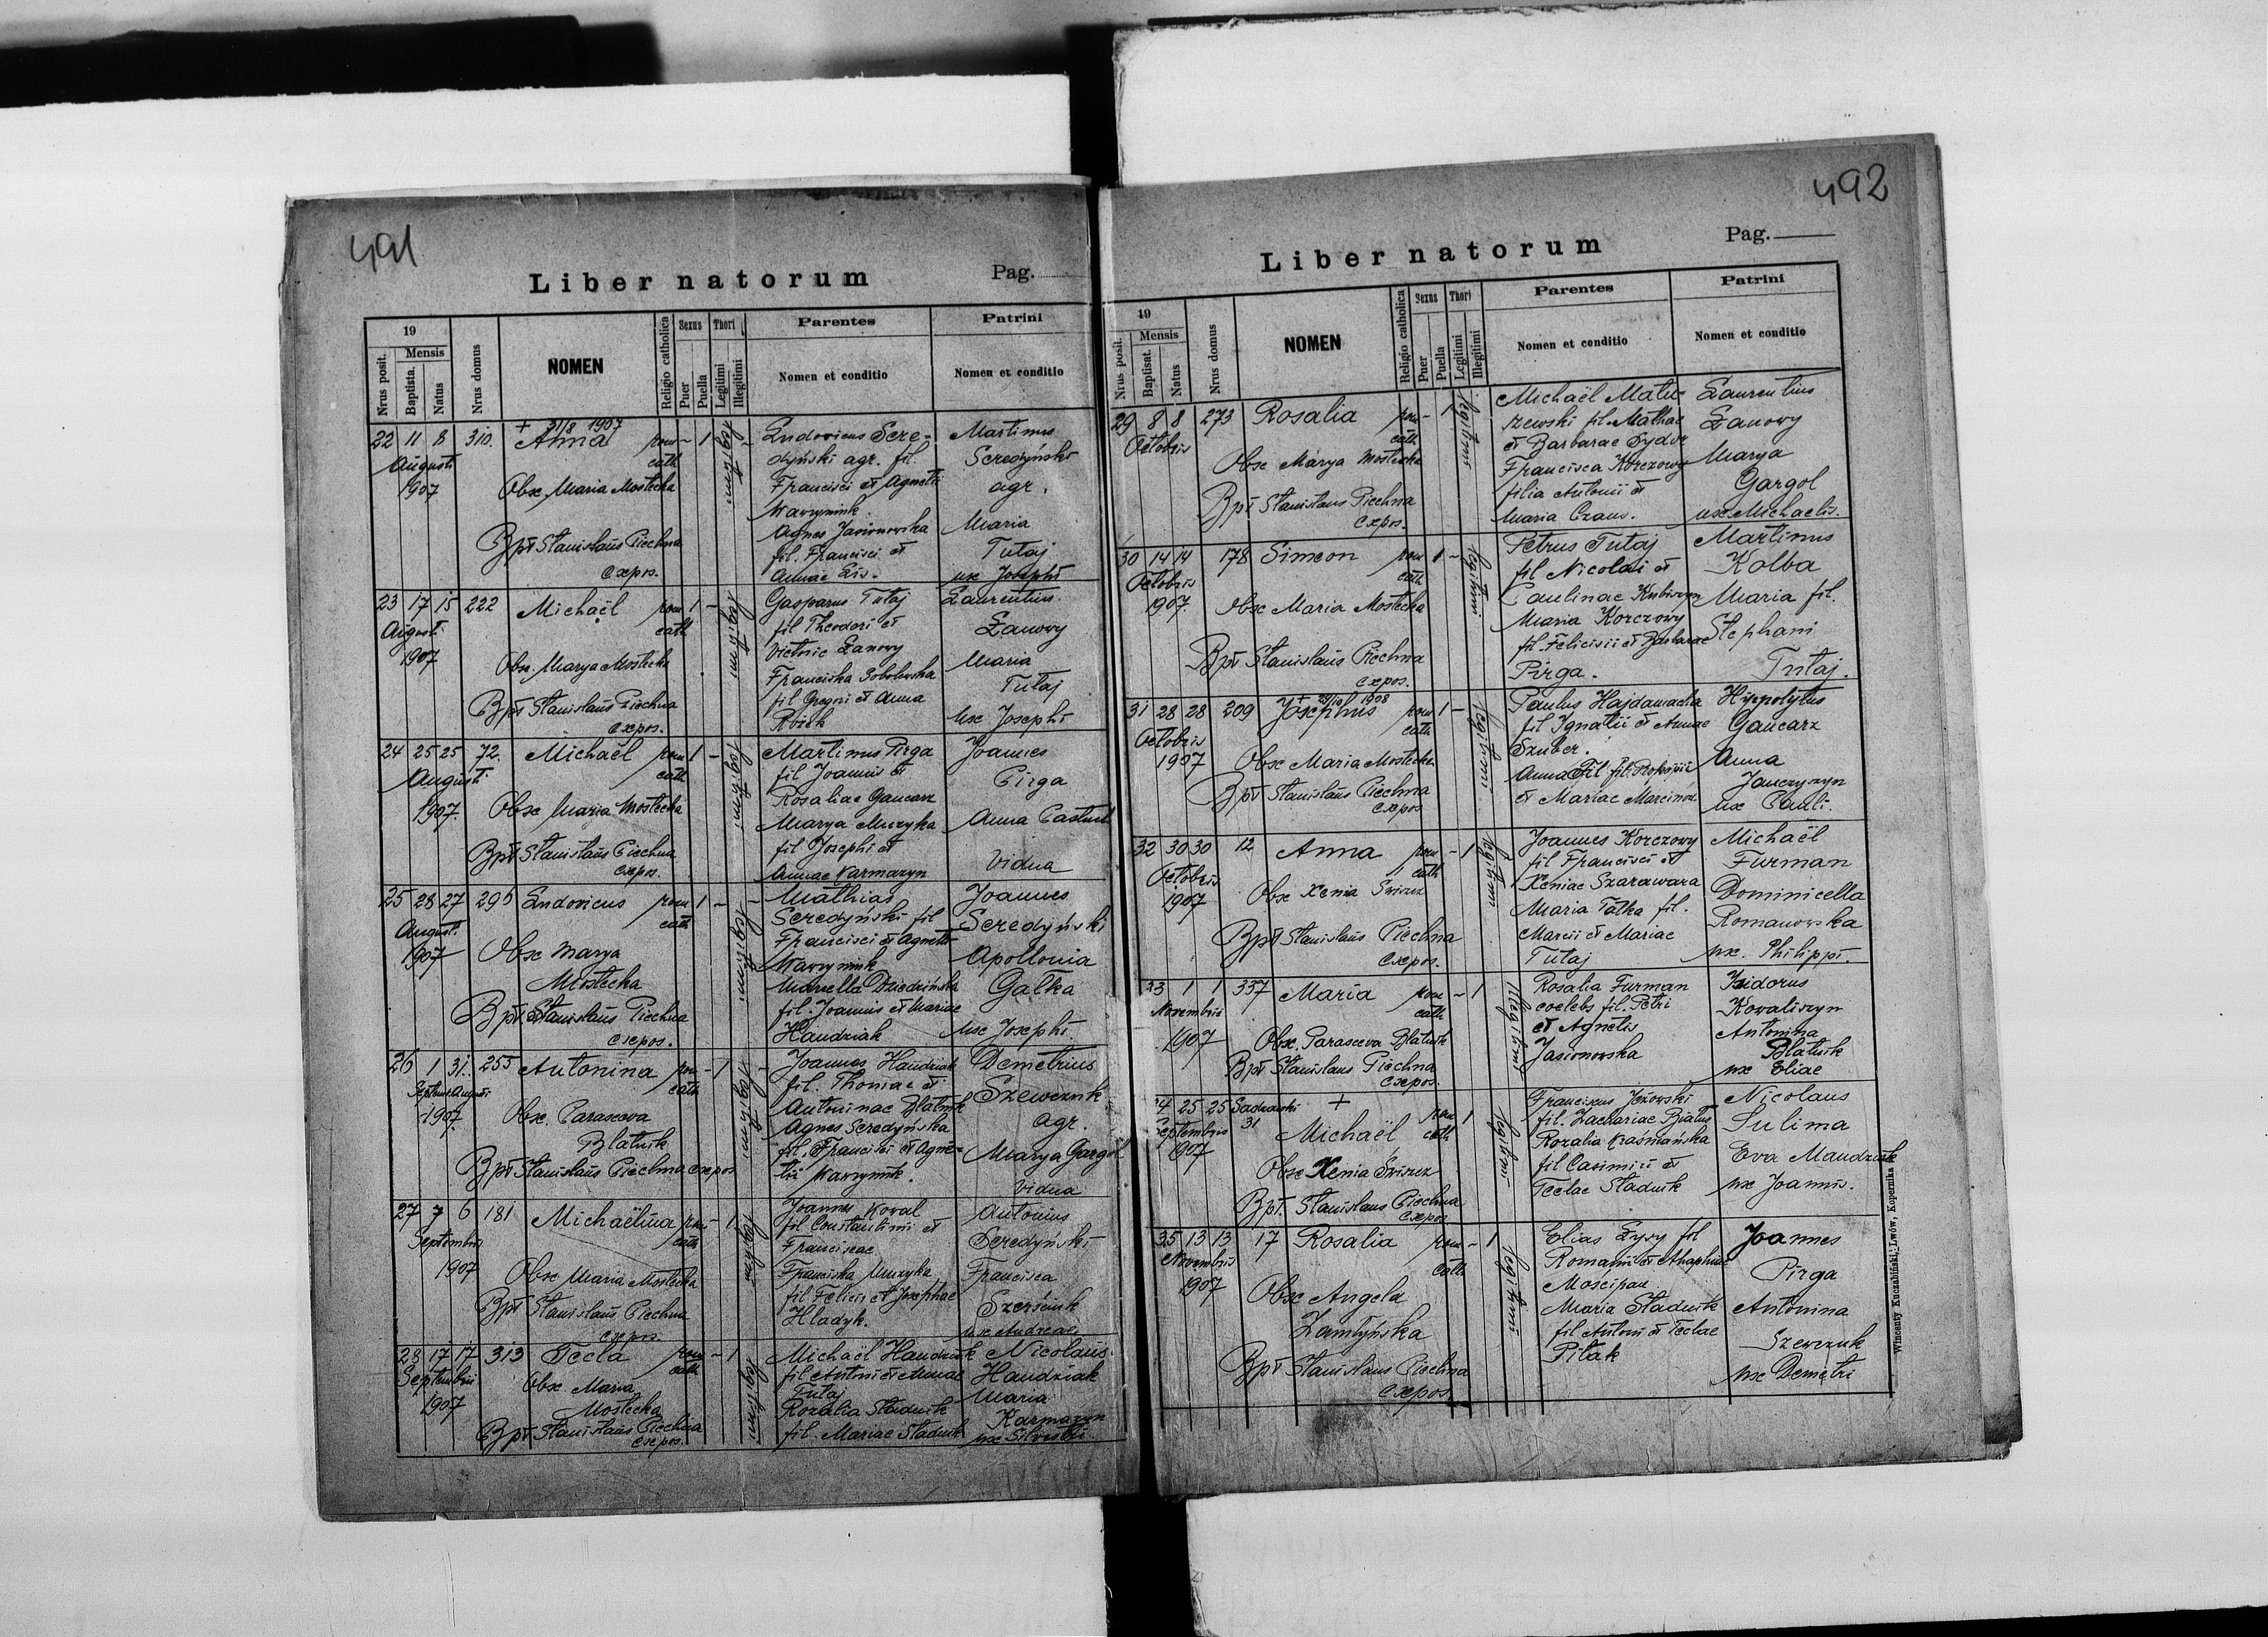 491
Liber natorum
Pag.
19
Mensis
Nrus posit.
Baptisat.
Natus
Nrus domus
NOMEN
Religio catholica
Sexus
Puer
Puella
Thori
Legitimi
Illegitimi
Parentes
Nomen et conditio
Patrini
Nomen et conditio
22 11 8 310. + 31/8 1907
Anna rom cath - 1 legitimi
Augusti
1907
Obse Maria Mostecka
Bpt Stanislaus Piechna
expos.
Ludovicus Sere-
dyński agr. fil.
Francisci et Agnetis
Wawryniuk.
Agnes Jasionowska
fil. Francisci et
Annae Lis.
Martinus
Seredyński
agr.
Maria
Tutaj
uxe Josephi
23 17 15 222 Michaël rom cath 1 - legitimi
Augusti
1907
Obse. Marya Mostecka
Bpt Stanislaus Piechna
expos.
Gasparus Tutaj
fil Theodori et
Victorie Łanowy
Franciska Sobolewska
fil Gregori et Anna
Laurentius
Łanowy
Maria
Tutaj
uxe Josephi
24 25 25 72. Michaël rom cath 1 - legitimi
Augusti
1907.
Obse Maria Mostecka
Bpt Stanislaus Piechna
expos.
Martinus Pirga
fil Joannis et
Rosaliae Gancarz
Marya Muzyka
fil Josephi et
Annae Karmazyn
Joannes
Pirga
Anna
Vidua
25 28 27 296 Ludovicus rom cath 1 - legitimi
August.
1907
Obse Marya
Mostecka
Bpt Stanislaus Piechna
expos.
Mathias
Seredyński fil
Francisci et Agnetis
Wawryniuk
Marcella Dziedzińska
fil. Joannis et Mariae
Handziak
Joannes
Seredyński
Apollonia
Gałka
uxe Josephi
26 1 31. 255 Antonina rom cath - 1 legitimi
Septem. Augusti
1907.
Obse. Parasceva
Blatnik
Bpt Stanislaus Piechna expos
Joannes Handziak
fil. Thomae et
Antoninae Blatnik
Agnes Seredyńska
fil. Francisci et Agne-
tis Wawryniuk.
Demetrius
Szewczuk
agr.
Marya Gargol
Vidua
27 7 6 181 Michaëlina rom cath - 1 legitimi
Septembris
1907
Obse Maria Mostecka
Bpt Stanislaus Piechna
expos.
Joannes Koval
fil Constantini et
Franciscae
Franciska Muzyka
fil Felicis et Josephae
Hladyk.
Antonius
Seredyński
Francisca
uxe Andreae
28 17 17 313 Tecla rom cath - 1 legitimi
Septembris
1907
Obse. Maria
Mostecka
Bpt Stanislaus Piechna
expos.
Michaël Handziak
fil Antoni et Annae
Tutaj
Rozalia Stadnik
fil. Mariae Stadnik
Nicolaus
Handziak
Maria
Karmazyn
uxe Silvestri
492
Liber natorum
Pag.
19
Mensis
Nrus posit.
Baptisat.
Natus
Nrus domus
NOMEN
Religio catholica
Sexus
Puer
Puella
Thori
Legitimi
Illegitimi
Parentes
Nomen et conditio
Patrini
Nomen et conditio
29 8 8 273 Rosalia rom cath - 1 legitimi
Octobris
Obse Marya Mostecka
Bpt Stanislaus Piechna
expos.
Michaël Matu-
szewski fil. Mathae
et Barbarae
Francisca Korczowy
filia Antonii et
Maria
Laurentius
Łanowy
Marya
Gargol
uxe Michaelis.
30 14 14 178 Simeon rom cath 1 - legitimi
Octobris
1907.
Obse Maria Mostecka
Bpt Stanislaus Piechna
expos.
Petrus Tutaj
fil Nicolai et
Paulinae
Maria Korczowy
fil Felicisii et Barbarae
Pirga.
Martinus
Kolba
Maria fil.
Stephani
Tutaj.
31 28 28 209 + 1908
Josephus rom cath 1 - legitimi
Octobris
1907
Obse Maria Mostecka
Bpt Stanislaus Piechna
expos
Paulus Hajdamacha
fil Ignatii et Annae
Szuber.
Anna fil.
et Mariae
Hyppolytus
Gancarz
Anna
Janczyszyn
uxe Pauli.
32 30 30 12 Anna rom cath - 1 legitimi
Octobris
1907
Obse Xenia Świszcz
Bpt Stanislaus Piechna
expos.
Joannes Korczowy
fil Francisci et
Xeniae Szarawara
Maria Tatka fil.
Marcii et Mariae
Tutaj
Michaël
Furman
Dominicella
Romanowska
uxe. Philippi.
33 1 1 337 Maria rom cath - 1 Illegitimi
Novembris
1907
Obse. Parasceva Blatnik
Bpt Stanislaus Piechna
expos.
Rosalia Furman
coelebs fil. Petri
et Agnetis
Jasionowska
Isidorus
Kowaliszyn
Antonina
Blatnik
uxe Eliae
34 25 25 Sadzawki 31 +
Michaël rom cath 1 legitimi
Septembris
1907
Obse Xenia Świszcz
Bpt. Stanislaus Piechna
expos
Franciscus Jeżowski
fil. Zachariae
Rozalia
fil Casimiri et
Teclae Stadnik
Nicolaus
Sulima
Eva
uxe Joannis.
35 13 13 17 Rosalia rom cath - 1 legitimi
Novembris
1907
Obse Angela
Bpt Stanislaus Piechna
expos
Elias Łysy fil
Romani et
Mościpan
Maria Stadnik
fil Antoni et Teclae
Pitak
Joannes
Pirga
Antonina
Szewczuk
uxe Demetri
Wincenty Kuczabiński, Lwów, Kopernika